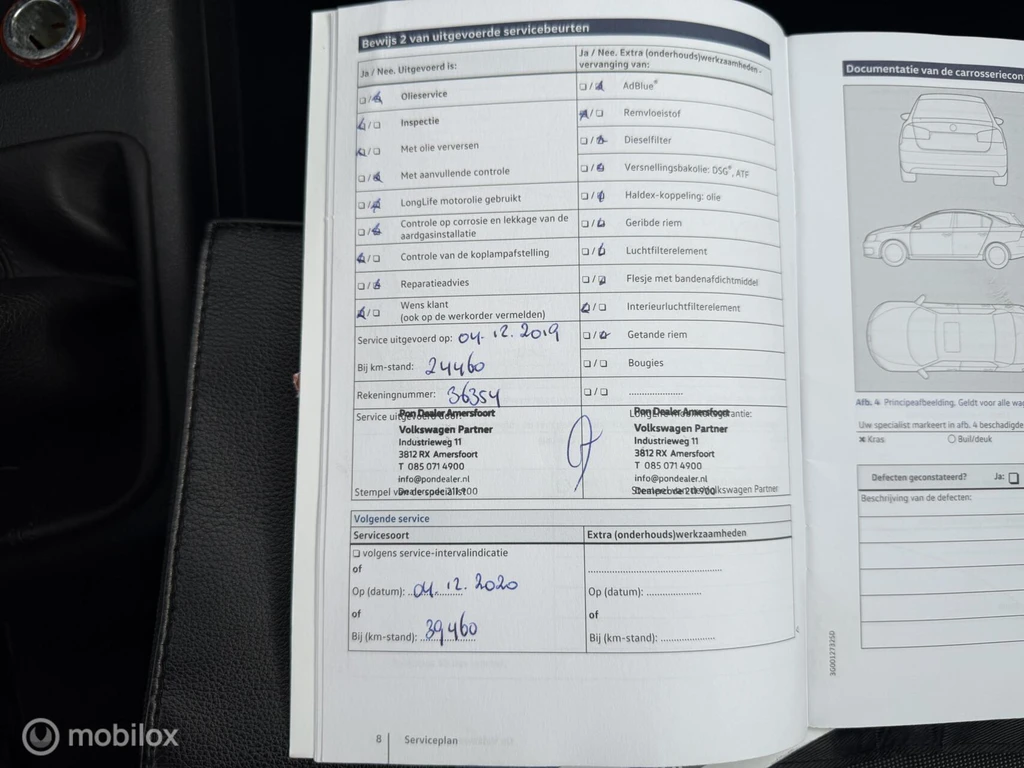 Bewijs 2 van uitgevoerde servicebeurten
Ja / Nee. Uitgevoerd is:
Olieservice
Inspectie
Met olie verversen
Met aanvullende controle
LongLife motorolie gebruikt
Controle op corrosie en lekkage van de
aardgasinstallatie
Controle van de koplampafstelling
Reparatieadvies
Wens klant
(ook op de werkorder vermelden)
Service uitgevoerd op: 04.12.2019
Bij km-stand: 24460
Rekeningnummer: 36354
Service uitgevoerd door:
Pon Dealer Amersfoort
Volkswagen Partner
Industrieweg 11
3812 RX Amersfoort
T 085 071 4900
info@pondealer.nl
Stempel van de specialist
Ja / Nee. Extra (onderhouds)werkzaamheden -
vervanging van:
AdBlue®
Remvloeistof
Dieselfilter
Versnellingsbakolie: DSG®, ATF
Haldex-koppeling: olie
Geribde riem
Luchtfilterelement
Flesje met bandenafdichtmiddel
Interieurluchtfilterelement
Getande riem
Bougies
....................
Pon Dealer Amersfoort
Volkswagen Partner
Industrieweg 11
3812 RX Amersfoort
T 085 071 4900
info@pondealer.nl
Volkswagen Partner
Volgende service
Servicesoort
Extra (onderhouds)werkzaamheden
volgens service-intervalindicatie
of
Op (datum): 04.12.2020
of
Bij (km-stand): 39460
Op (datum): ....................
of
Bij (km-stand): ....................
8 Serviceplan
Documentatie van de carrosserie
Afb. 4 Principeafbeelding. Geldt voor alle
Uw specialist markeert in afb. 4 beschadigde
Kras
Buil/deuk
Defecten geconstateerd? Ja:
Beschrijving van de defecten:
3G0012732SD
mobilox